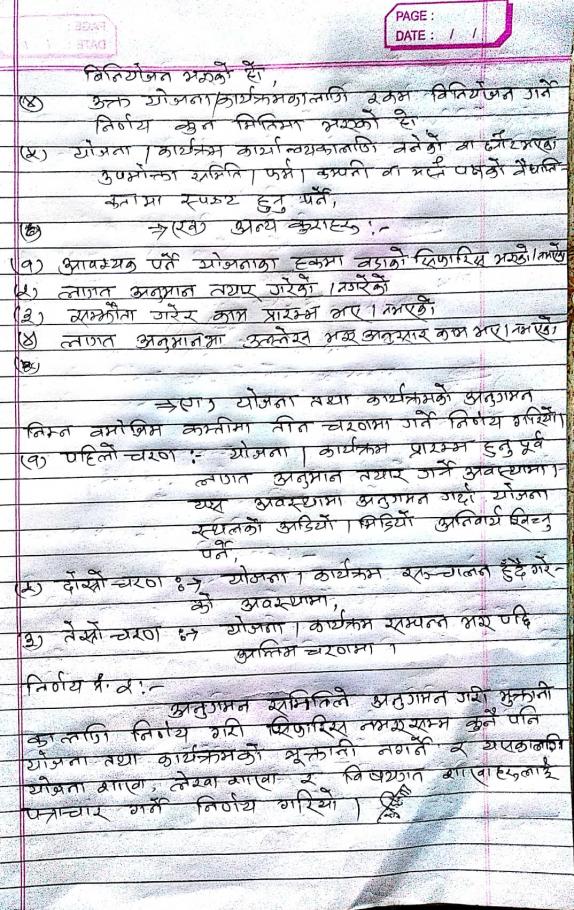 PAGE :
DATE : / /
विनियोजन भएको हो,
(४) उक्त योजना/कार्यक्रमकालागि रकम विनियोजन गर्ने
निर्णय कुन मितिमा भएको हो
(५) योजना / कार्यक्रम कार्यान्वयकालागि बनेको वा छनौटभएका
उपभोक्ता समिति / फर्म / कम्पनी वा
स्पष्ट हुनु पर्ने,
→(ख) अन्य कुराहरु :-
(१) आवश्यक पर्ने योजनाका हकमा वडाको सिफारिस भएको / नभएको
(२) लागत अनुमान तयार गरेको / नगरेको
(३) सम्झौता गरेर काम प्रारम्भ भए / नभएको
(४) लागत अनुमानमा उल्लेख भए अनुसार काम भए / नभएको
→(ग) योजना तथा कार्यक्रमको अनुगमन
निम्न बमोजिम कम्तीमा तीन चरणमा गर्ने निर्णय गरियो।
(१) पहिलो चरण :- योजना / कार्यक्रम प्रारम्भ हुनु पूर्व
लागत अनुमान तयार गर्ने अवस्थामा।
यस अवस्थामा अनुगमन गर्दा योजना
स्थलको अडियो / भिडियो अनिवार्य खिच्नु
पर्ने,
(२) दोस्रो चरण :→ योजना / कार्यक्रम सञ्चालन हुँदै गरे-
को अवस्थामा,
३) तेस्रो चरण :→ योजना / कार्यक्रम सम्पन्न भए पछि
अन्तिम चरणमा ।
निर्णय नं. २:-
अनुगमन समितिले अनुगमन गरी भुक्तानी
का लागि निर्णय गरी सिफारिस नभएसम्म कुनै पनि
योजना तथा कार्यक्रमको भूक्तानी नगर्ने र यसकालागि
योजना शाखा, लेखा शाखा र विषयगत शाखाहरुलाई
पत्राचार गर्ने निर्णय गरियो ।